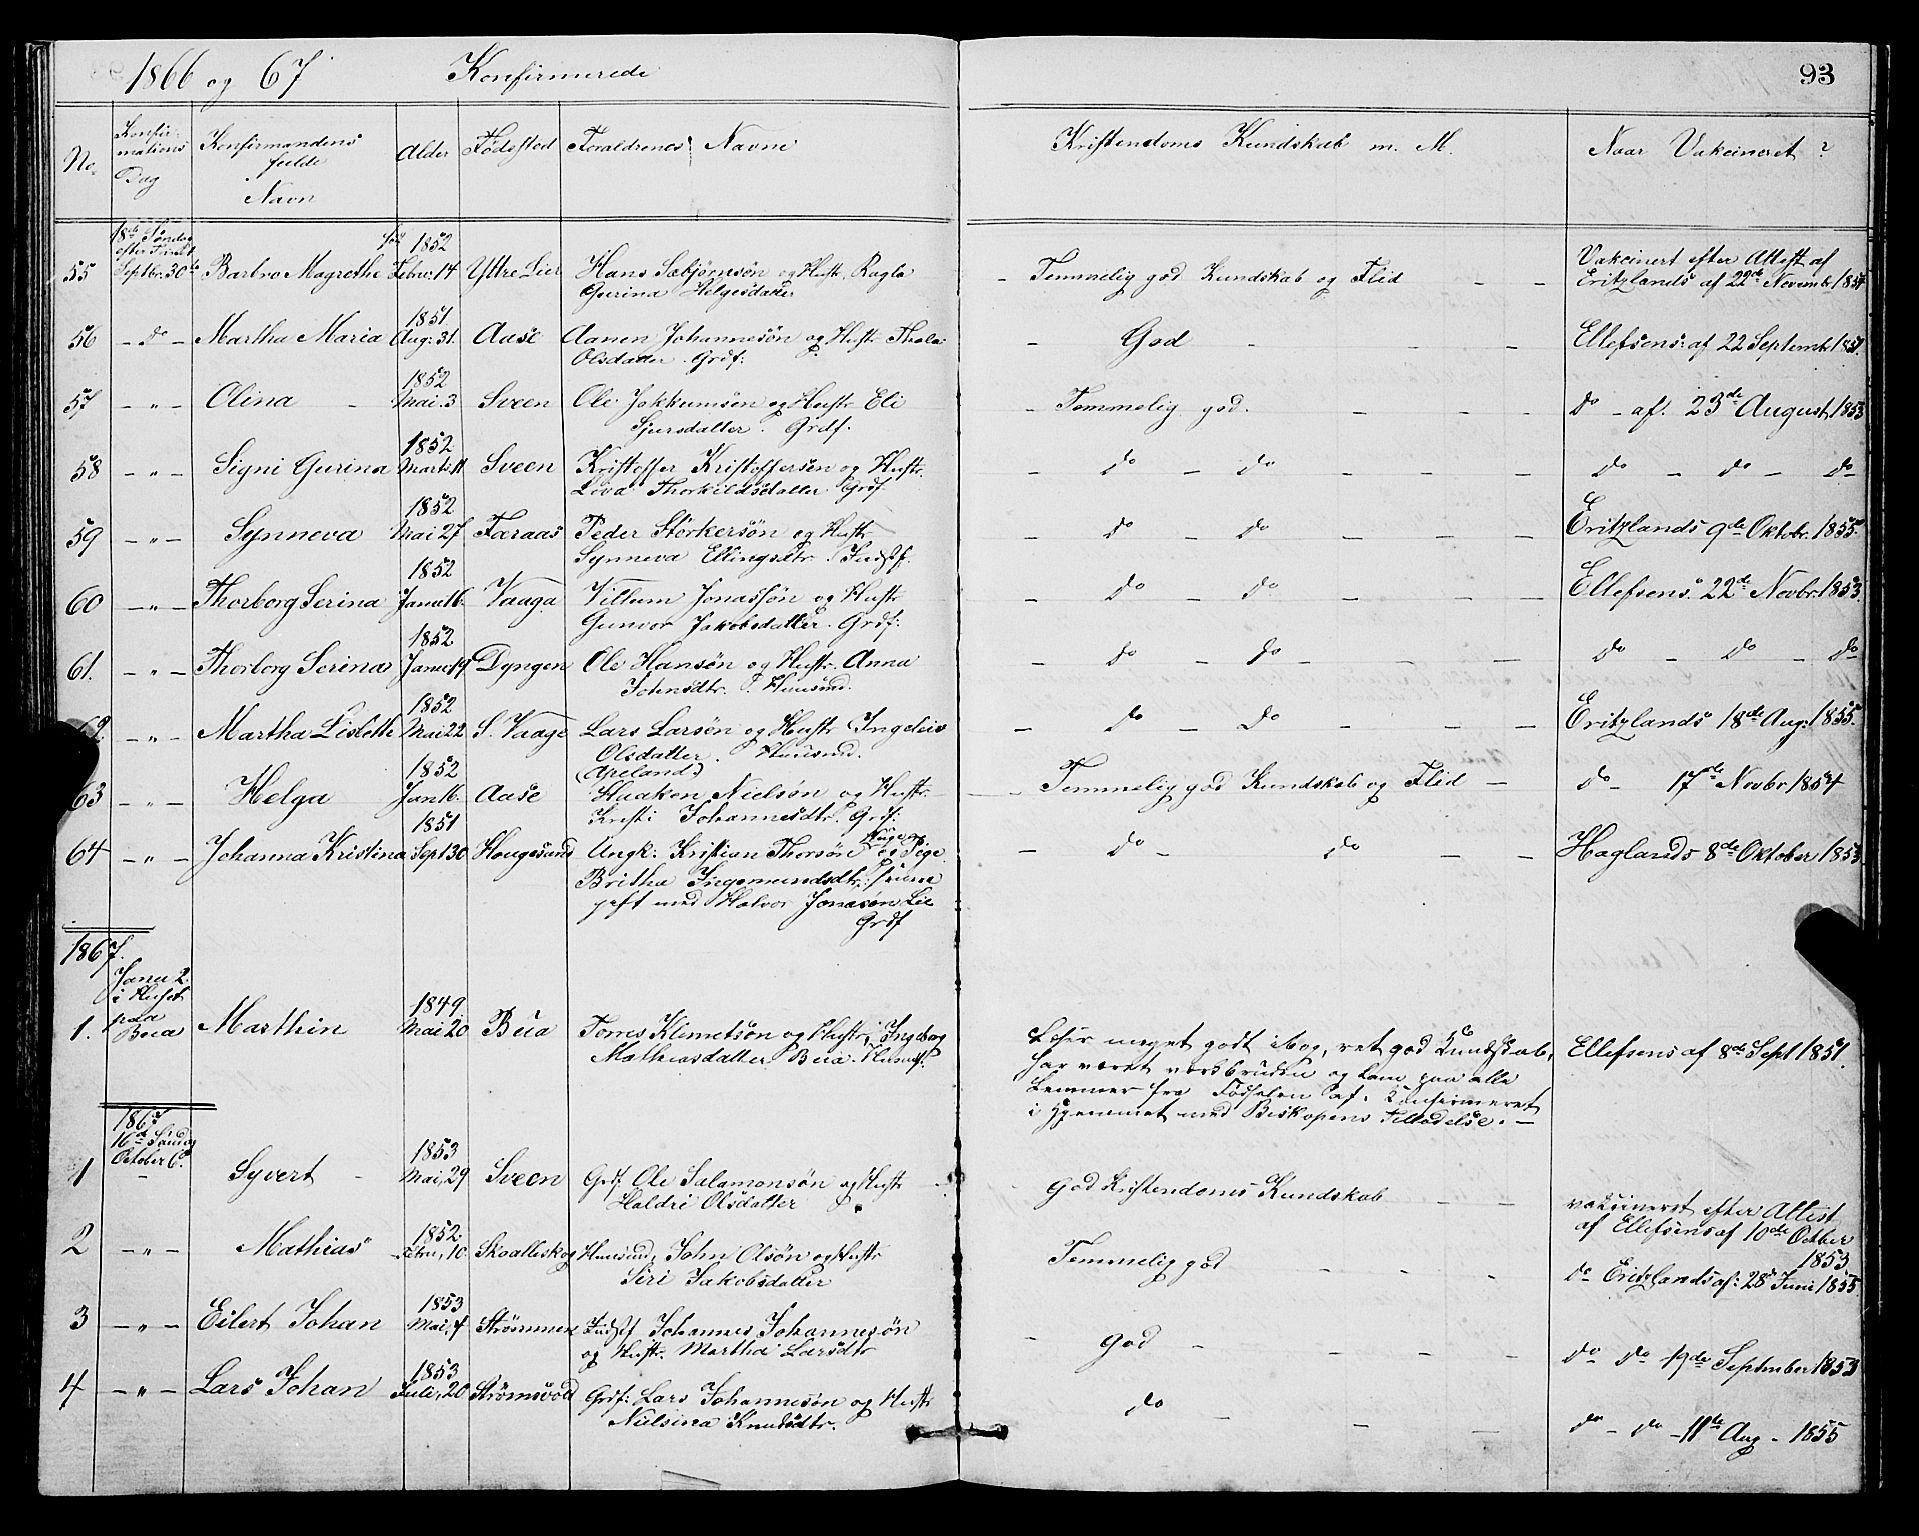 1866 og 67 Konfirmerede 93
No. Konfir- mations Dag Konfirmandens fulde Navn Alder Fødested Foraldrenes Navne Kristendoms Kundskab m. M. Naar Vakcineret ?
18de Søndag efter Trinit Septbr. 30te
55 Barbro Magrethe fød 1852 Febru. 14 Yttre Lier Hans Sæbjørnsøn og Hustr. Ragla
Gurina Helgesdatter
- Temmelig god Kundskab og Flid - - Vakcinert efter Attest af
Eritzlands af 22de Novemb. 1854
56 - do - Martha Maria 1851 Aug. 31. Aase Aanen Johannesøn og Hustr. Thala
Olsdatter. Grdf:
- God - - - Ellefsens: af 22 Septemb. 1851.
57 - " - Olina - 1852 Mai. 3 Sveen Ole Jokkumsøn og Hustr. Eli
Sjursdatter. Grdf.
- Temmelig god. - - - do - af. 23de August 1853
58 - " - Signi Gurina 1852 Marts. 11 Sveen Kristoffer Kristoffersen og Hustr.
Lova Thorkildsdatter Grdf
- do - do - - - do - do - do
59 - " - Synneva 1852 Mai 27 Færaas Peder Størkersøn og Hustr
Synneva Ellingsdtr. Indstf.
- do - do - - - Eritzlands 9de Oktobr. 1855.
60 - " - Thorborg Serina 1852 Janu 16. Vaaga Villum Jonassøn og Hustr
Gunvor Jakobsdatter. Grdf:
- do - do - - - Ellefsens. 22de Novbr. 1853.
61. - " - Thorborg Serina 1852. Janu 19 Dyngen Ole Hansøn og Hustr. Anna
Johnsdtr. Huusmd.
- do - do - - - do - do - do
62. - " - Martha Lisbette 1852 Mai 22 S. Vaage Lars Larsøn og Hustr Ingeleiv
Olsdatter. Huusmd.
- do - do - - - Eritzlands 18de Aug. 1855.
63 - " - Helga 1852 Jan 16. Aase (Apeland.) Haaken Nielsøn og Hustr.
Kristi Johannesdtr. Grdf:
- Temmelig god Kundskab og Flid - do - 17de Novbr. 1854
64 - " - Johanna Kristina 1851 Sept 30 Hougesund Ungk. Kristian Thorsøn og Pige
Britha Ingemundsdtr.
gift med Halvor Jonasøn Lie
Grdf
- do - do - - Haglands 8de Oktober 1853
1867.
Janu 2. i Huset paa Beia
1. Marthin 1849. Mai 20 Beia Torres Klemetsøn og Hustr. Ingeborg
Mathiasdatter Beia. Huusmd.
Læser meget godt i Bog, ret god Kundskab,
har været værkbruden og lam paa alle
Lemmer fra Fødselen af. Confirmeret
i Hjemmet med Biskopens Tilladelse. -
Ellefsens af 8de Sept 1851.
1867
16de Søndag October 6te
1 - Syvert - 1853 Mai, 29 Sveen Grdf. Ole Salamonsøn og Hustr
Haldri Olsdatter
God Kristendoms Kundskab - - vakcineret efter Attest
af Ellefsens af 10de October
1853
2 - " - Mathias 1852. Febru, 10. Skoalleskog Huusmd, John Olsøn og Hustr
Siri Jakobsdatter
Temmelig god - - - do Eritzlands af: 28de Juni 1855
3 - " - Eilert Johan 1853 Mai, 4 Strømmen Indstf Johannes Johannesøn
og Hustr. Martha Larsdtr
- God - - - - do do 19de September 1853
4 - " - Lars Johan 1853 Juli, 20 Strømsvold Grdf: Lars Johannesøn og Hustr
Nielsina Knudsdtr.
do - - - do - do - 11de Aug - 1855